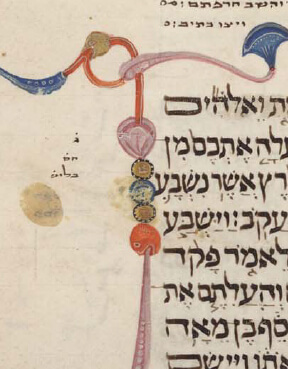 ויצו כתיב:
ת ואלהים
עלה אתכם מן
רץ אשר נשבע
עקב: וישבע
לאמר פקד
והעלתם את
סף בן מאה
אתו ויישם